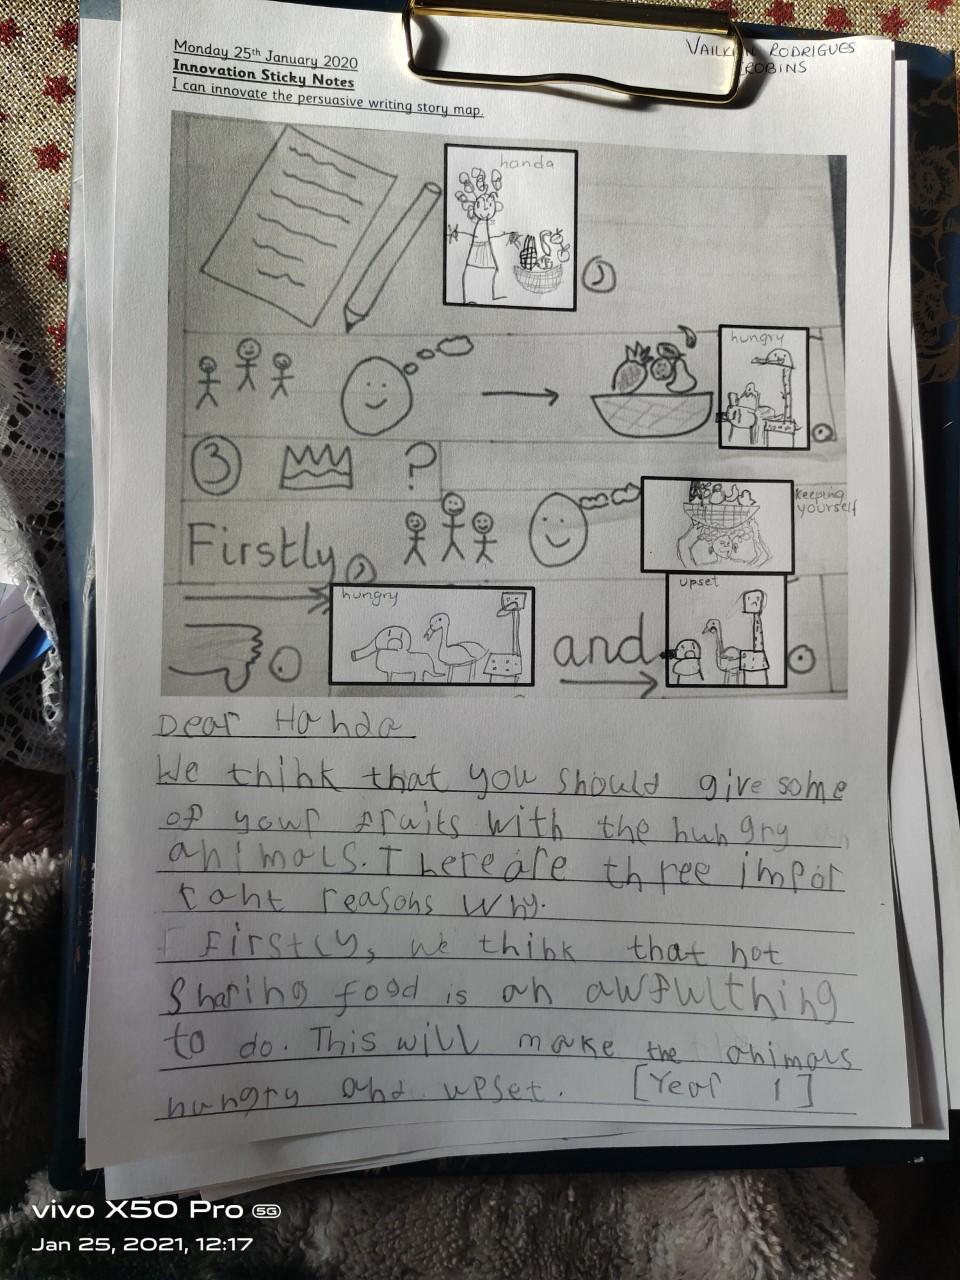 Monday 25th January 2020
Innovation Sticky Notes
I can innovate the persuasive writing story map.
RODRIGUES
ROBINS
handa
,
hungry
.
3 ?
Firstly,
keeping
yourself
hungry
upset
and
.
Dear Handa
We think that you should give some
of your fruits with the hungry
animals. There are three impor
tant reasons why.
Firstly, we think that not
sharing food is an awful thing
to do. This will make the animals
hungry and upset. [Year 1]
vivo X50 Pro 5G
Jan 25, 2021, 12:17